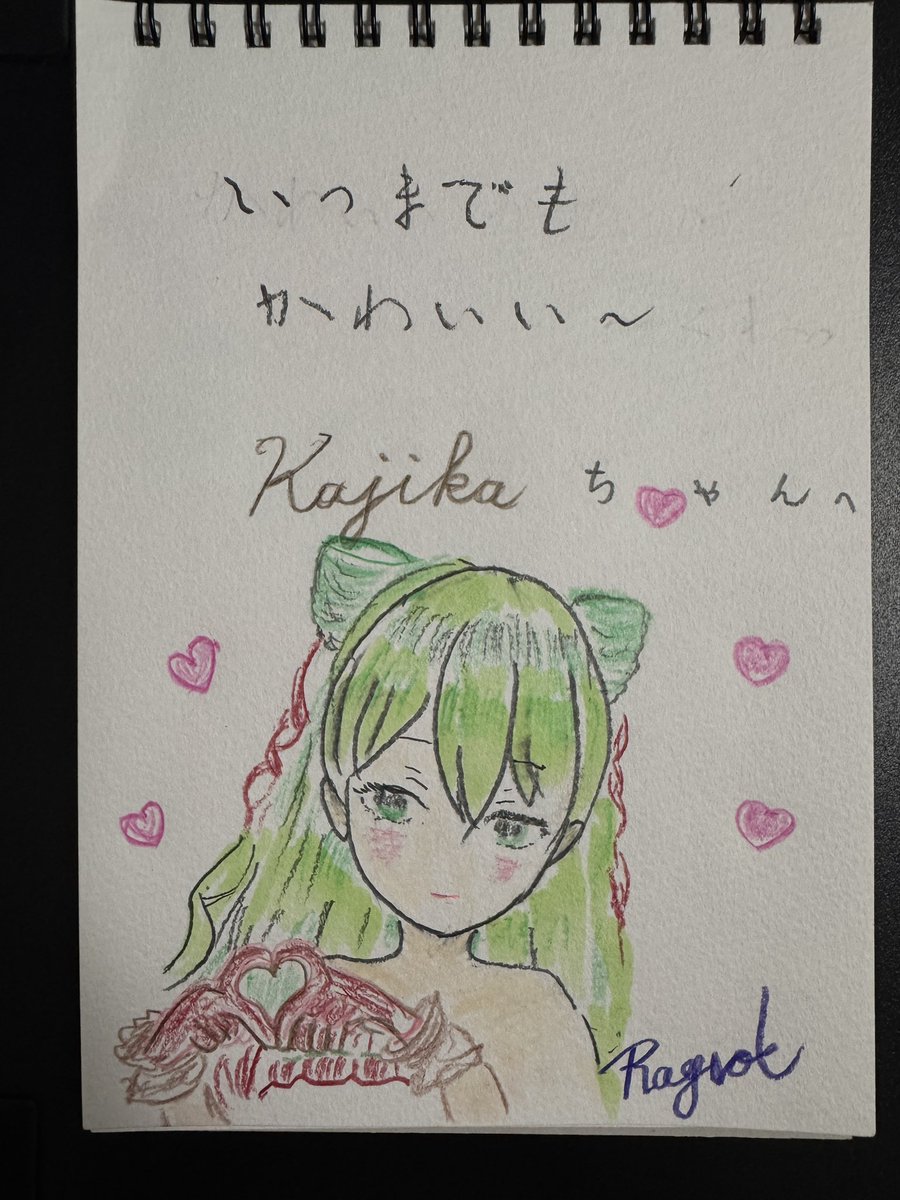 いつまでも
かわいい～
Kajika ちゃんへ
Ragvok